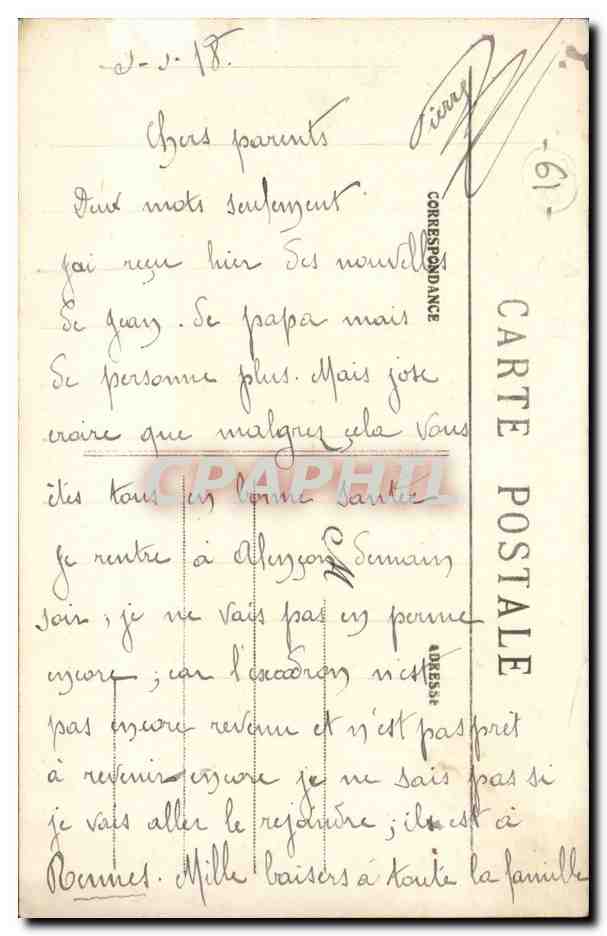 3-3-18.
Chers parents
Deux mots seulement.
j'ai reçu hier des nouvelles
de jean. de papa mais
de personne plus. Mais jose
croire que malgrez cela vous
êtes tous en bonne santée
Je rentre à Alençon demain
soir, je ne vais pas en perme
encore; car l'escadron n'est
pas encore revenu et n'est pas prêt
à revenir encore je ne sais pas si
je vais aller le rejoindre; il est à
Rennes. Mille baisers à toute la famille
Pierre
CORRESPONDANCE
M
ADRESSE
CARTE POSTALE
-61-
CPAPHIL